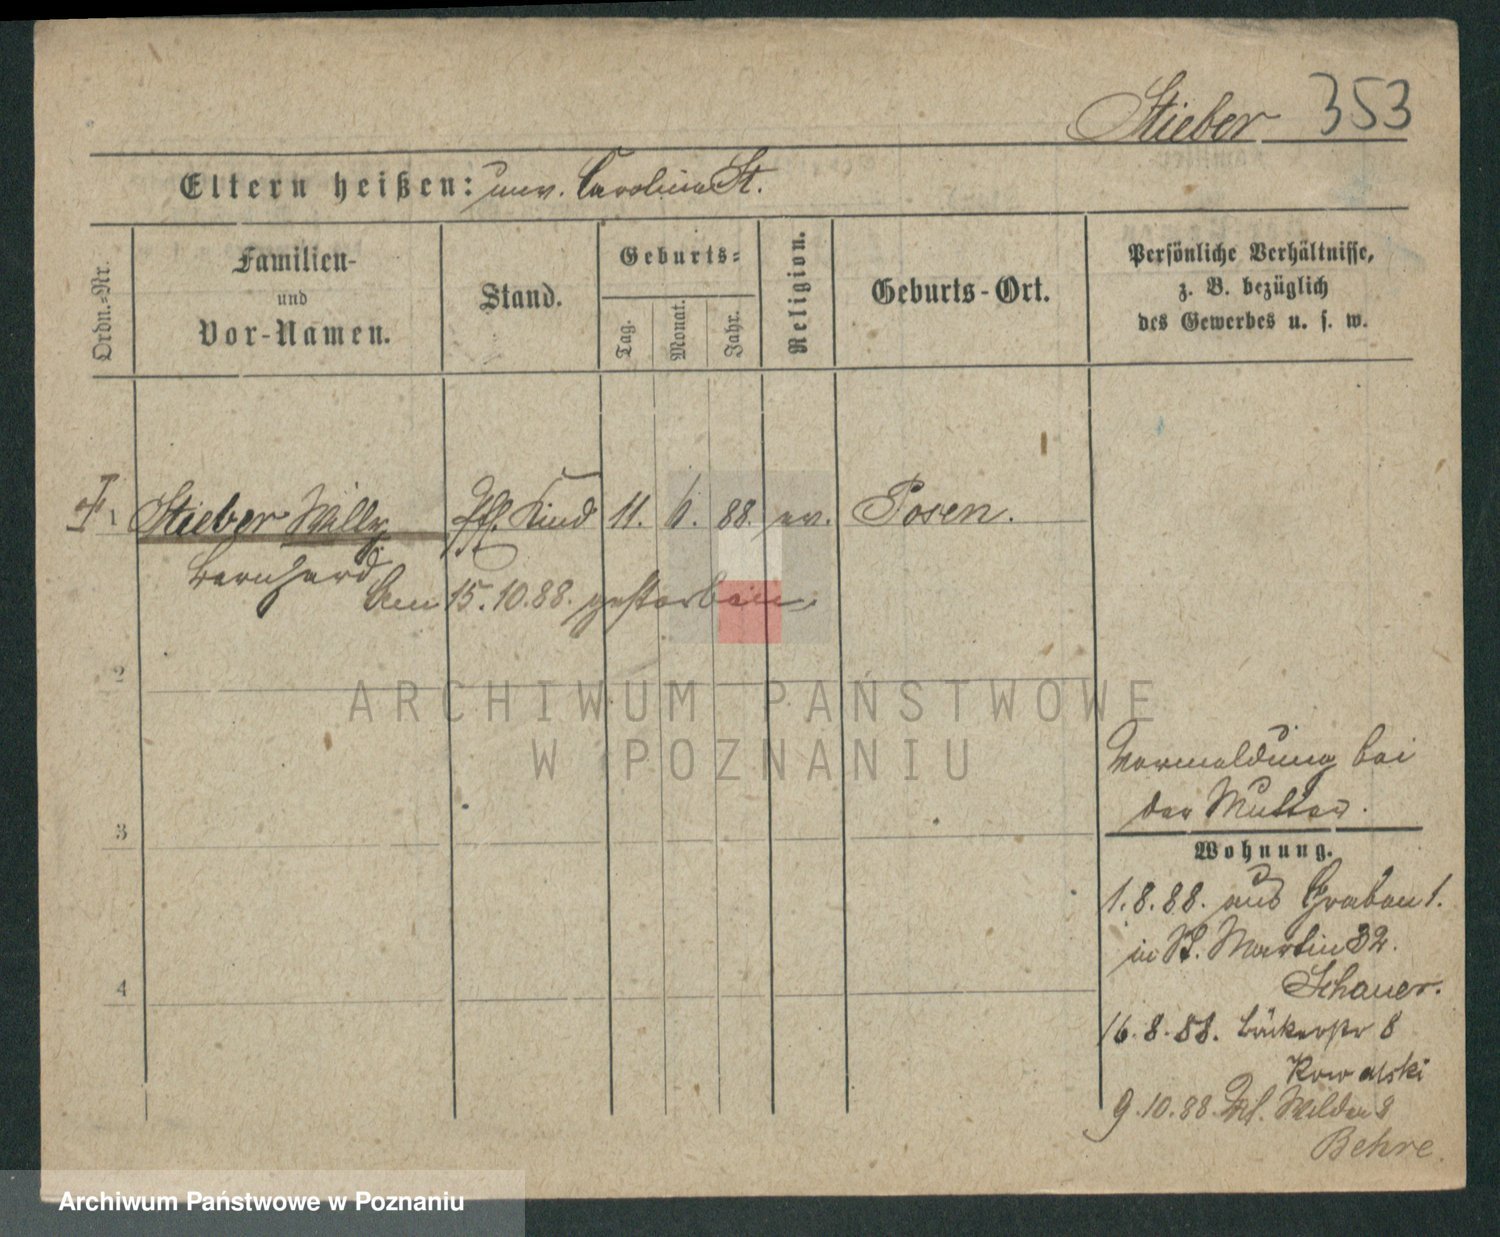 Stieber 353
Eltern heißen: unv. Carolina St.
Ordn.-Nr.
Familien-
und
Vor-Namen.
Stand.
Geburts-
Tag.
Monat.
Jahr.
Religion.
Geburts-Ort.
Persönliche Verhältnisse,
z. B. bezüglich
des Gewerbes u. s. w.
1 Stieber Willy Kind 11. 6. 88. ev. Posen.
Bernhard
Am 15.10.88. gestorben.
2
3
4
Vormeldung bei
der Mutter.
Wohnung.
1.8.88. aus Graben 1.
in St. Martin 32.
Schauer.
16.8.88. Bäckerstr 8
Kowalski
9.10.88. Wilda 8
Behre.
ARCHIWUM PAŃSTWOWE
W POZNANIU
Archiwum Państwowe w Poznaniu